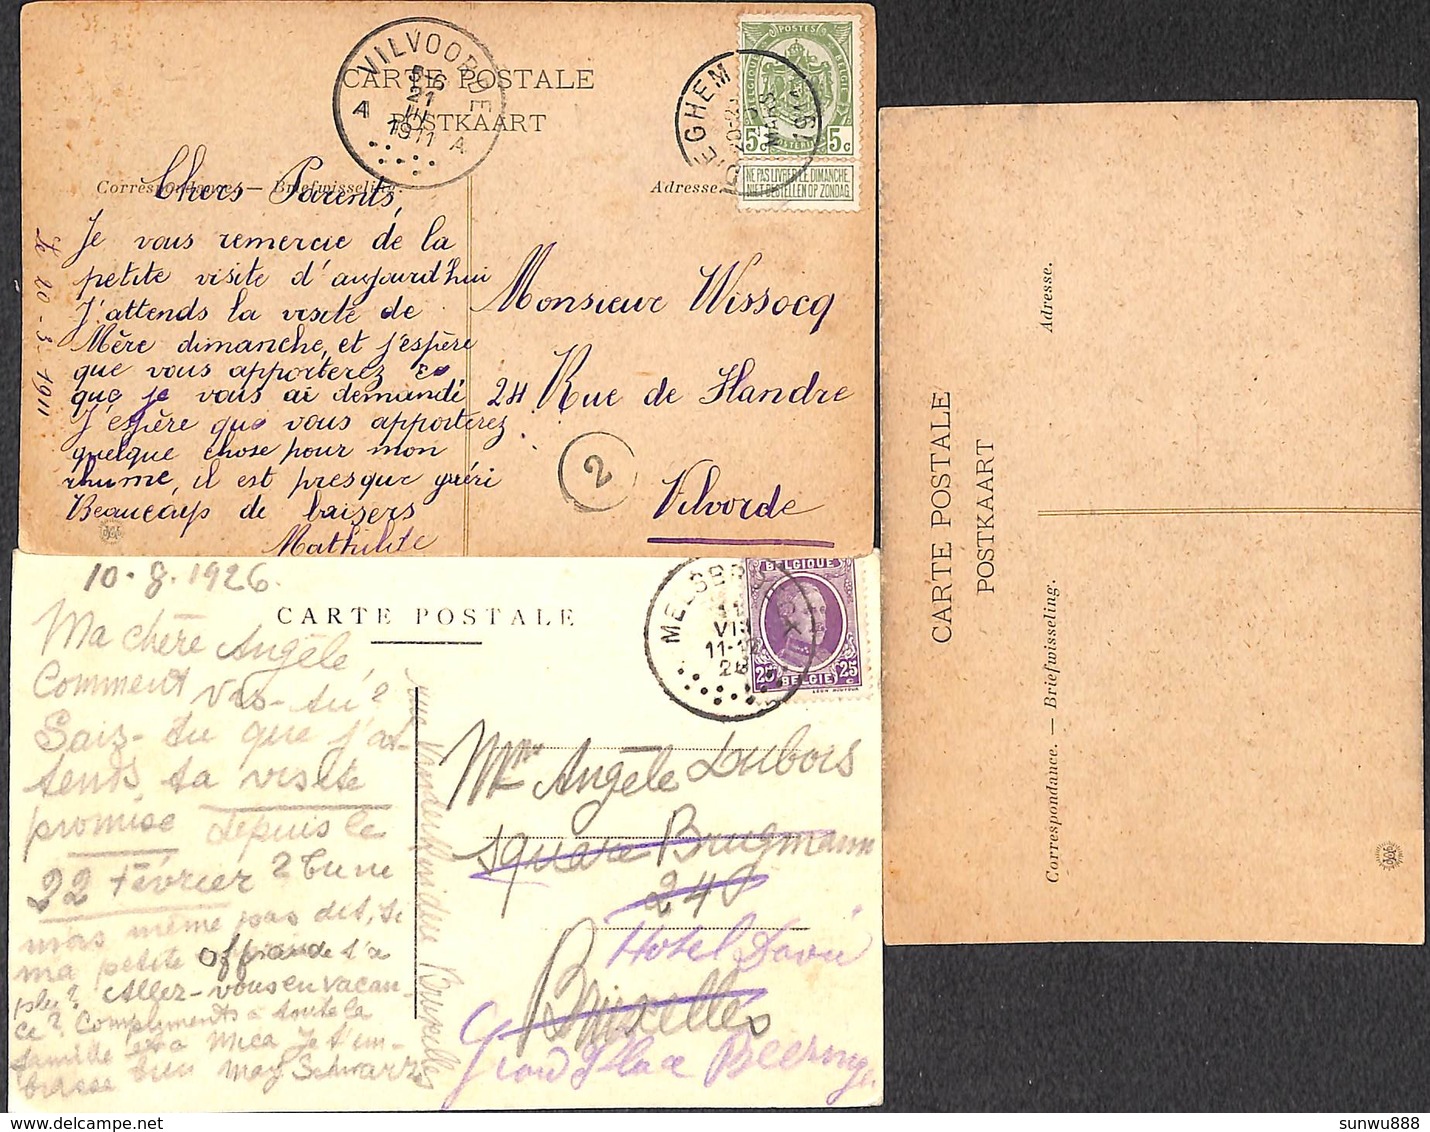 CARTE POSTALE
POSTKAART
Correspondance. — Briefwisseling.
Adresse.
VILVOORDE
21
III
1911
A A
DIEGHEM
1911
POSTES
BELGIQUE BELGIE
5c 5c
NE PAS LIVRER LE DIMANCHE
NIET BESTELLEN OP ZONDAG
Le 20-3-1911
Chers Parents,
Je vous remercie de la
petite visite d'aujourd'hui
J'attends la visite de
Mère dimanche, et j'espère
que vous apporterez ce
que je vous ai demandé
J'espère que vous apporterez
quelque chose pour mon
rhume, il est presque guéri
Beaucoup de baisers
Mathilde
Monsieur Wissocq
24 Rue de Flandre
Vilvorde
2
10.8.1926
CARTE POSTALE
Ma chère Angèle,
Comment
vas-tu?
Sais-tu que j'at-
tends ta visite
promise depuis le
22 Février? Tu ne
m'as même pas dit, si
ma petite offrande t'a
plu? Allez-vous en vacan-
ce? Compliments à toute la
famille et à Mica Je t'em-
brasse bien May Schwartz
Bruxelles
MELSBROECK
11
VIII
11-12
26
BELGIQUE
25 25
BELGIË
Mlle Angèle Dubois
square Brugmann
240
Bruxelles
Hotel David
Grand Place
CARTE POSTALE
POSTKAART
Correspondance. — Briefwisseling.
Adresse.
sunwu888